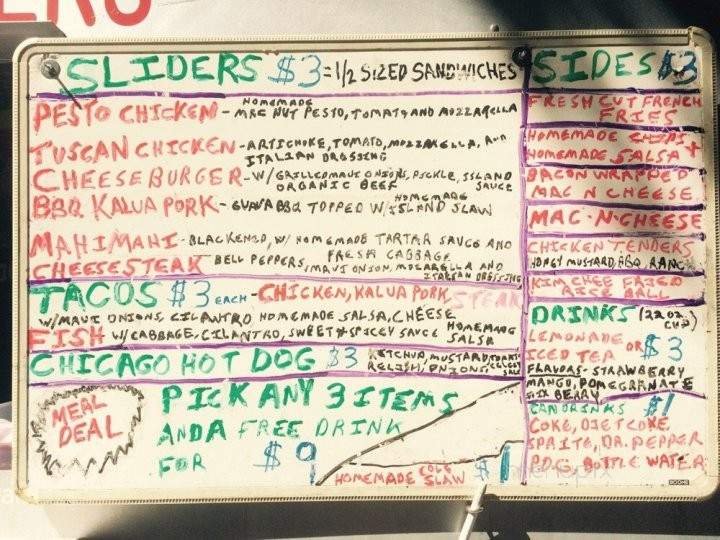 SLIDERS $3 = 1/2 SIZED SANDWICHES
PESTO CHICKEN - HOMEMADE
MAC NUT PESTO, TOMATO AND MOZZARELLA
TUSCAN CHICKEN - ARTICHOKE, TOMATO, MOZZARELLA, AND
ITALIAN DRESSING
CHEESEBURGER - W/ GRILLED MAUI ONIONS, PICKLE, ISLAND
ORGANIC BEEF SAUCE
BBQ KALUA PORK - GUAVA BBQ TOPPED W/ HOMEMADE
ISLAND SLAW
MAHI MAHI - BLACKENED, W/ HOMEMADE TARTAR SAUCE AND
FRESH CABBAGE
CHEESESTEAK BELL PEPPERS, MAUI ONION, MOZARELLA AND
ITALIAN DRESSING
TACOS $3 EACH - CHICKEN, KALUA PORK, STEAK
W/ MAUI ONIONS, CILANTRO HOMEMADE SALSA, CHEESE
FISH W/ CABBAGE, CILANTRO, SWEET & SPICEY SAUCE HOMEMADE
SALSA
CHICAGO HOT DOG $3 KETCHUP, MUSTARD, TOMATO
RELISH, ONIONS, CELERY
MEAL
DEAL
PICK ANY 3 ITEMS
AND A FREE DRINK
FOR $9
HOMEMADE COLE
SLAW $1
SIDES $3
FRESH CUT FRENCH
FRIES
HOMEMADE CHIPS +
HOMEMADE SALSA
BACON WRAPPED
MAC N CHEESE
MAC-N-CHEESE
CHICKEN TENDERS
HONEY MUSTARD, BBQ, RANCH
KIM CHEE FRIED
RICE BALL
DRINKS (22 OZ.
CUP)
LEMONADE OR $3
ICED TEA
FLAVORS - STRAWBERRY
MANGO, POMEGRANATE
SIX BERRY
CAN DRINKS $1
COKE, DIET COKE
SPRITE, DR. PEPPER
POG, BOTTLE WATER